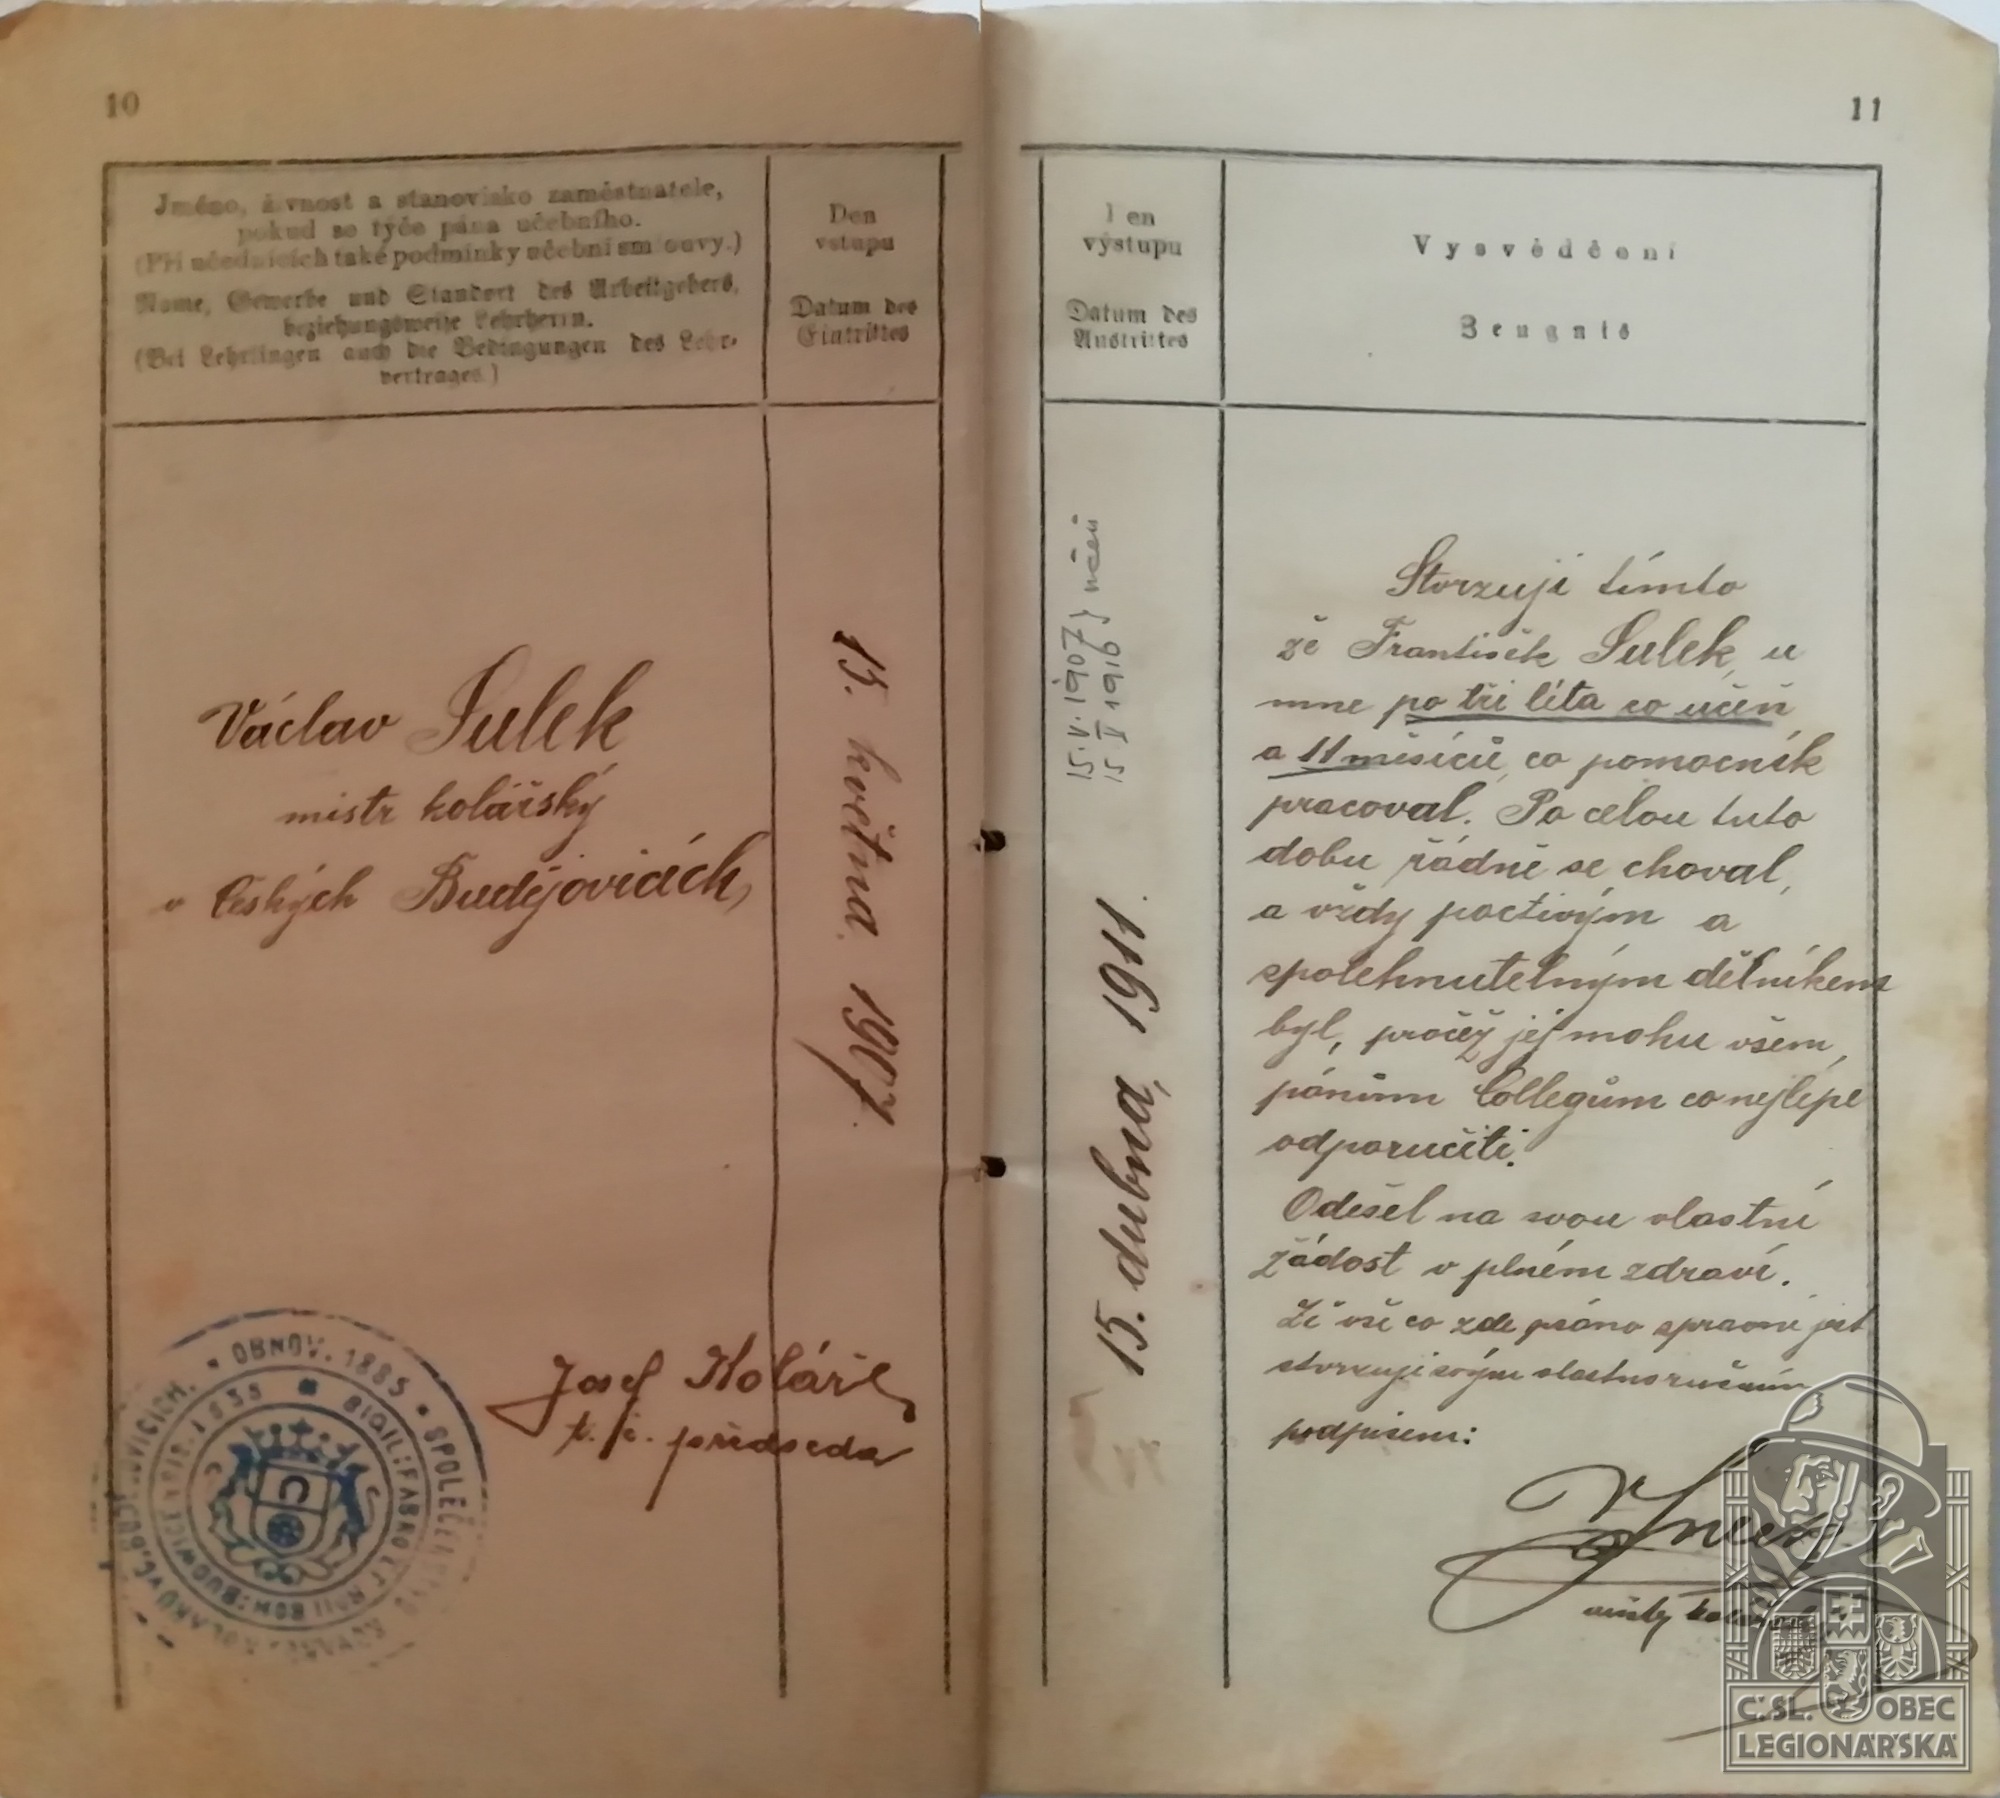 10
Jméno, živnost a stanovisko zaměstnatele,
pokud se týče pána učebního.
(Při učednících také podmínky učební smlouvy.)
Name, Gewerbe und Standort des Arbeitgebers,
beziehungsweise Lehrherrn.
(Bei Lehrlingen auch die Bedingungen des Lehr-
vertrages.)
Den
vstupu
Datum des
Eintrittes
Václav Sulek
mistr kolářský
v Českých Budějovicích
15. května 1907.
Josef Kolář
t. č. předseda
OBNOV. 1885 * SPOLEČENSTVO
11
Den
výstupu
Datum des
Austrittes
Vysvědčení
Zeugnis
15. V. 1907 } učeň
15 V 1910
15. dubna, 1911.
Stvrzuji tímto
že František Sulek, u
mne po tři léta co učeň
a 11 měsíců, co pomocník
pracoval. Po celou tuto
dobu řádně se choval,
a vždy poctivým a
spolehnutelným dělníkem
byl, pročež jej mohu všem,
pánům Collegům co nejlépe
odporučiti.
Odešel na svou vlastní
žádost v plném zdraví.
Že vše co zde psáno správné jest
stvrzuji svým vlastnoručním
podpisem:
V Sulek
ČSL. OBEC
LEGIONÁŘSKÁ